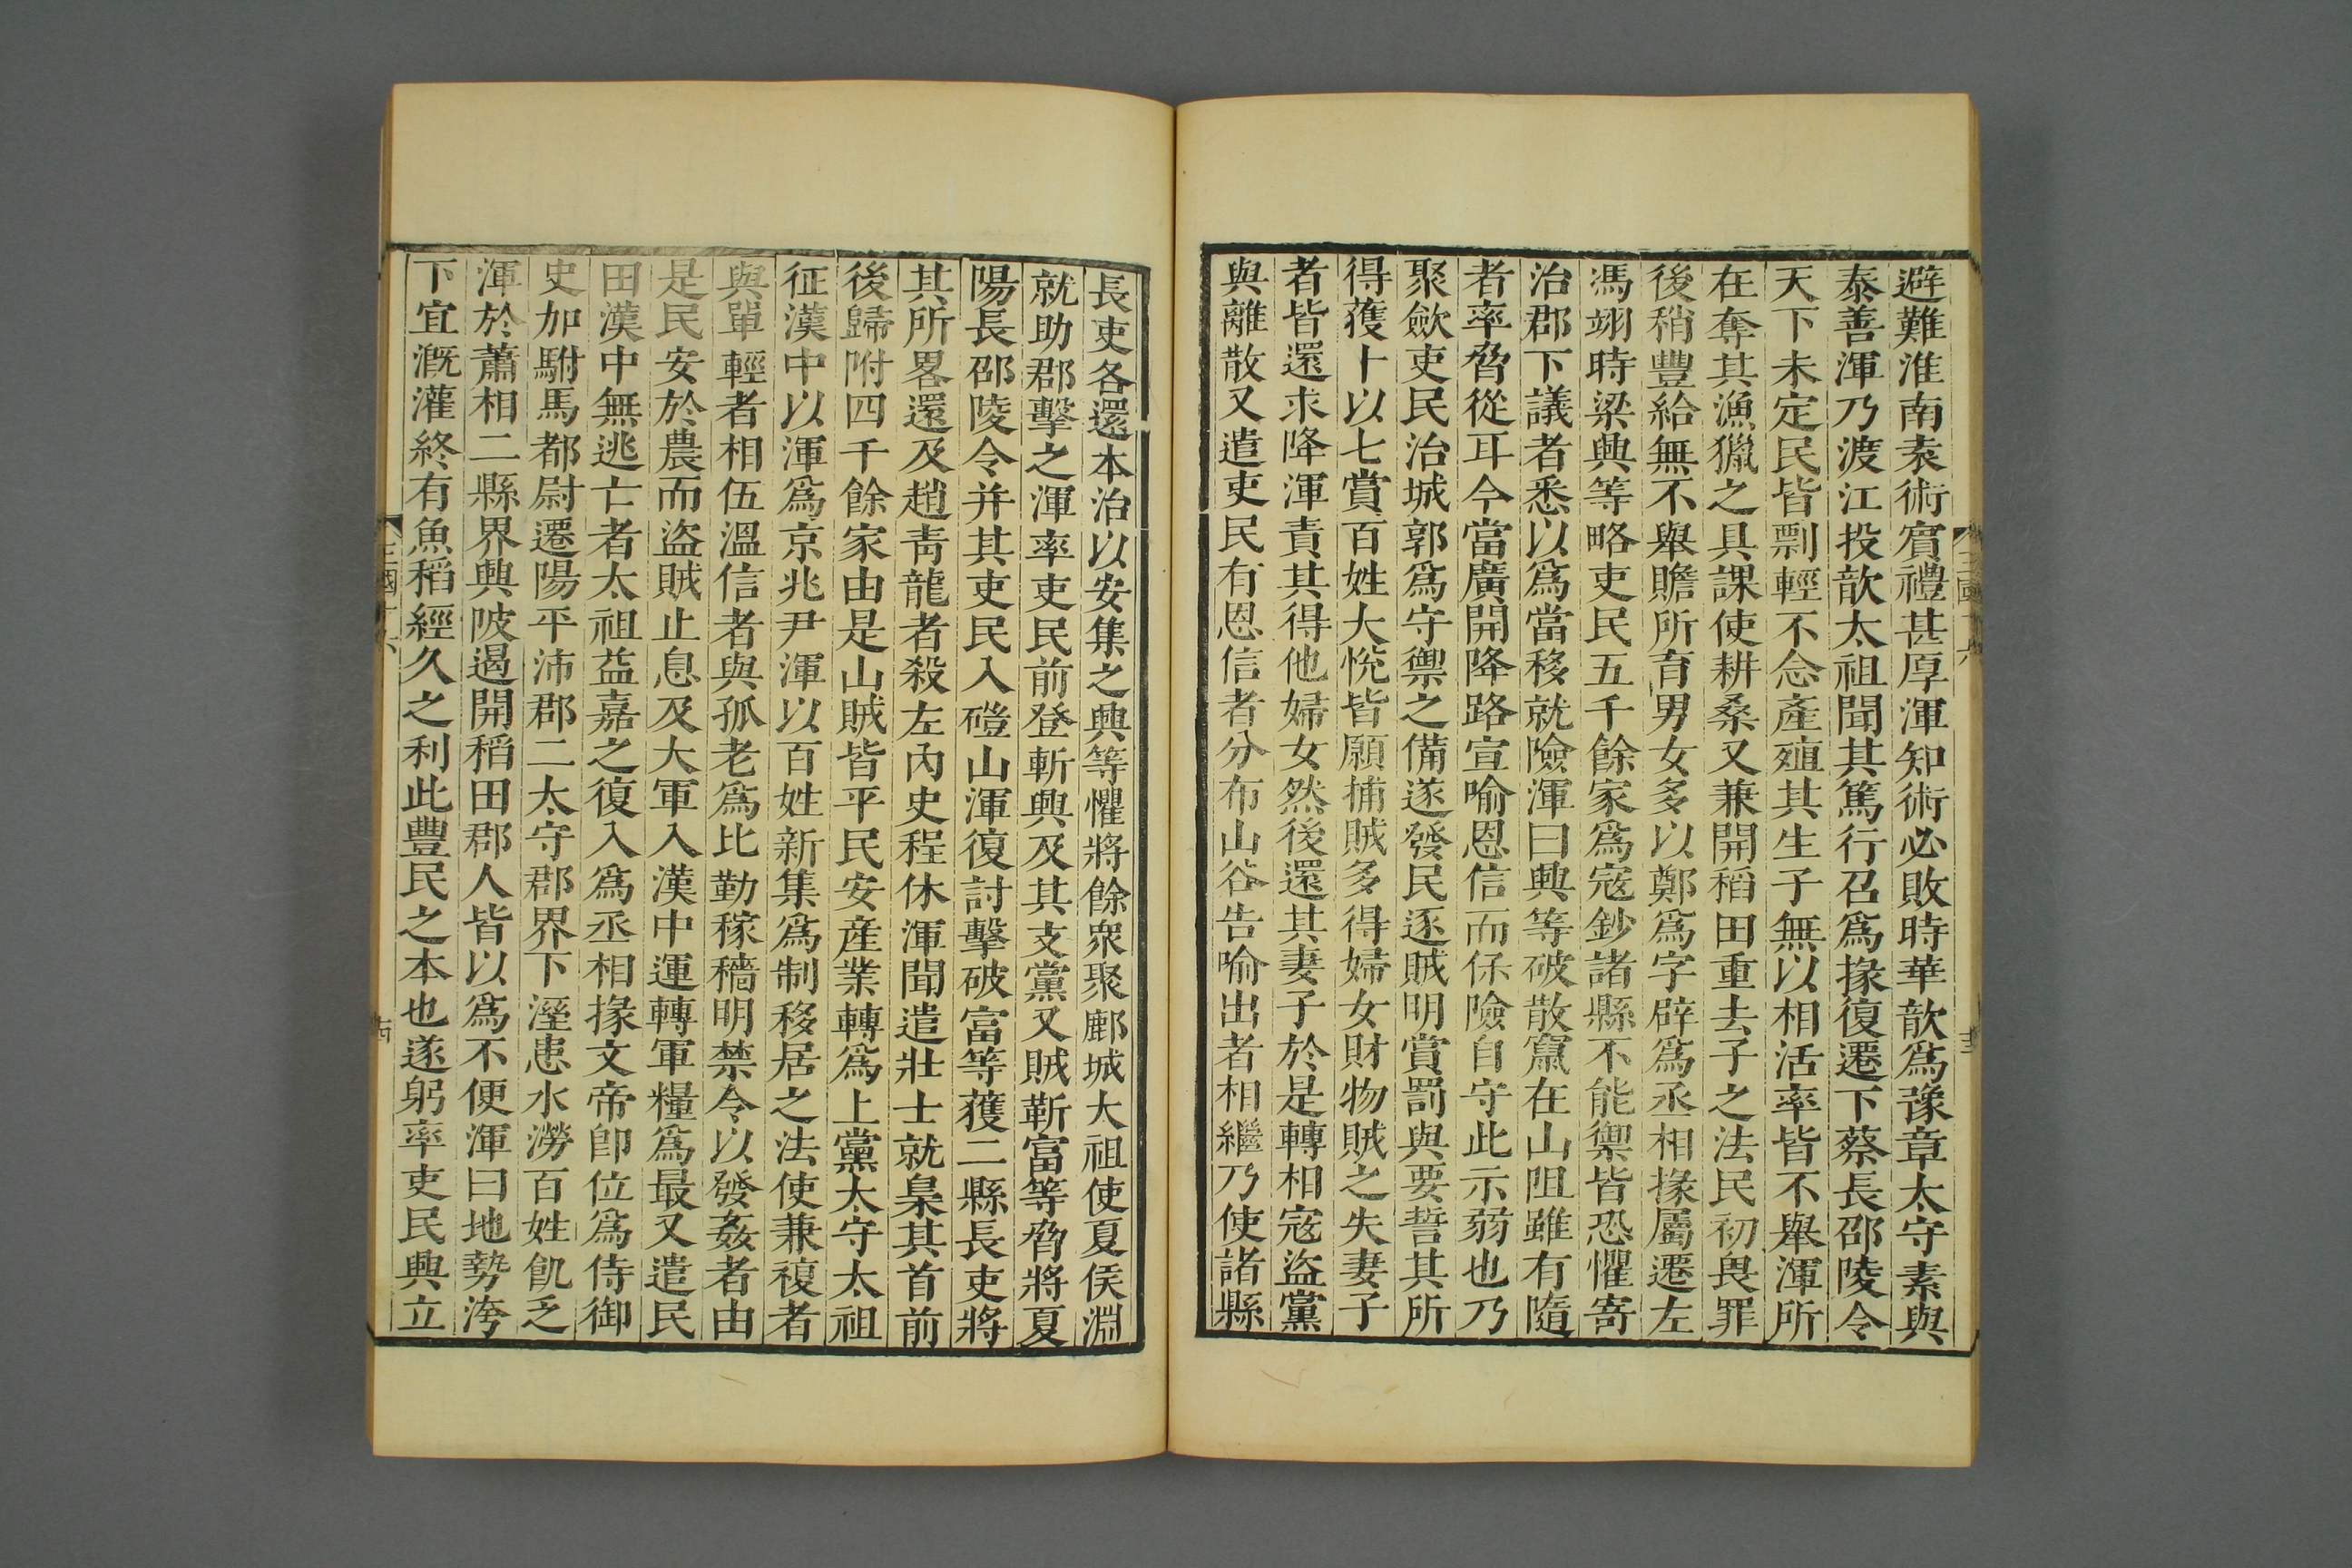 避難淮南袁術賓禮甚厚渾知術必敗時華歆爲豫章太守素與
泰善渾乃渡江投歆太祖聞其篤行召爲掾復遷下蔡長邵陵令
天下未定民皆剽輕不念產殖其生子無以相活率皆不舉渾所
在奪其漁獵之具課使耕桑又兼開稻田重去子之法民初畏罪
後稍豐給無不舉贍所育男女多以鄭爲字辟爲丞相掾屬遷左
馮翊時梁興等略吏民五千餘家爲寇鈔諸縣不能禦皆恐懼寄
治郡下議者悉以爲當移就險渾曰興等破散竄在山阻雖有隨
者率脅從耳今當廣開降路宣喻恩信而保險自守此示弱也乃
聚歛吏民治城郭爲守禦之備遂發民逐賊明賞罰與要誓其所
得獲十以七賞百姓大悅皆願捕賊多得婦女財物賊之失妻子
者皆還求降渾責其得他婦女然後還其妻子於是轉相寇盜黨
與離散又遣吏民有恩信者分布山谷告喻出者相繼乃使諸縣
長吏各還本治以安集之興等懼將餘衆聚鄜城大祖使夏侯淵
就助郡擊之渾率吏民前登斬興及其支黨又賊靳富等脅將夏
陽長邵陵令并其吏民入磑山渾復討擊破富等獲二縣長吏將
其所畧還及趙靑龍者殺左內史程休渾聞遣壯士就梟其首前
後歸附四千餘家由是山賊皆平民安産業轉爲上黨太守太祖
征漢中以渾爲京兆尹渾以百姓新集爲制移居之法使兼複者
與單輕者相伍溫信者與孤老爲比勤稼穡明禁令以發姦者由
是民安於農而盜賊止息及大軍入漢中運轉軍糧爲最又遣民
田漢中無逃亡者太祖益嘉之復入爲丞相掾文帝卽位爲侍御
史加駙馬都尉遷陽平沛郡二太守郡界下溼患水澇百姓飢乏
渾於蕭相二縣界興陂遏開稻田郡人皆以爲不便渾曰地勢洿
下宜溉灌終有魚稻經久之利此豐民之本也遂躬率吏民興立